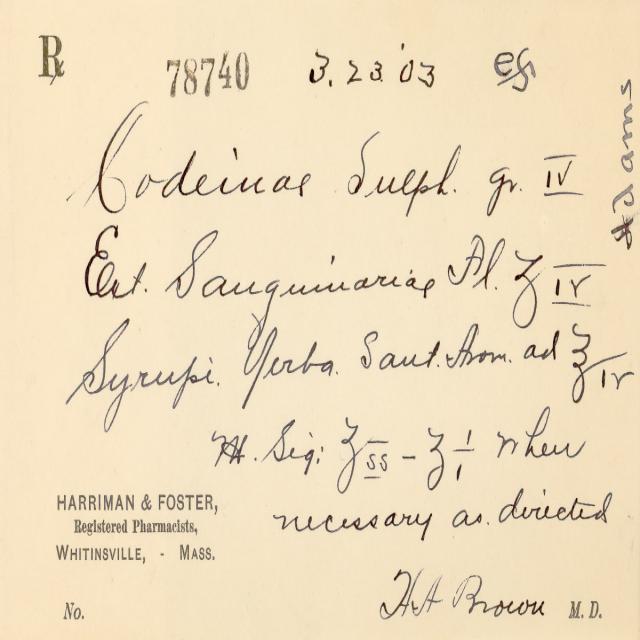 ℞ 78740 3.23.'03
Adams
Codeinae Sulph. gr. IV
Ext. Sanguinariae Fl. ʒ IV
Syrupi. Yerba. Sant. Arom. ad ℥ IV
M. Sig: ʒ ss - ʒ i when
necessary as directed
HARRIMAN & FOSTER,
Registered Pharmacists,
WHITINSVILLE, - MASS.
No. HA Brown M. D.